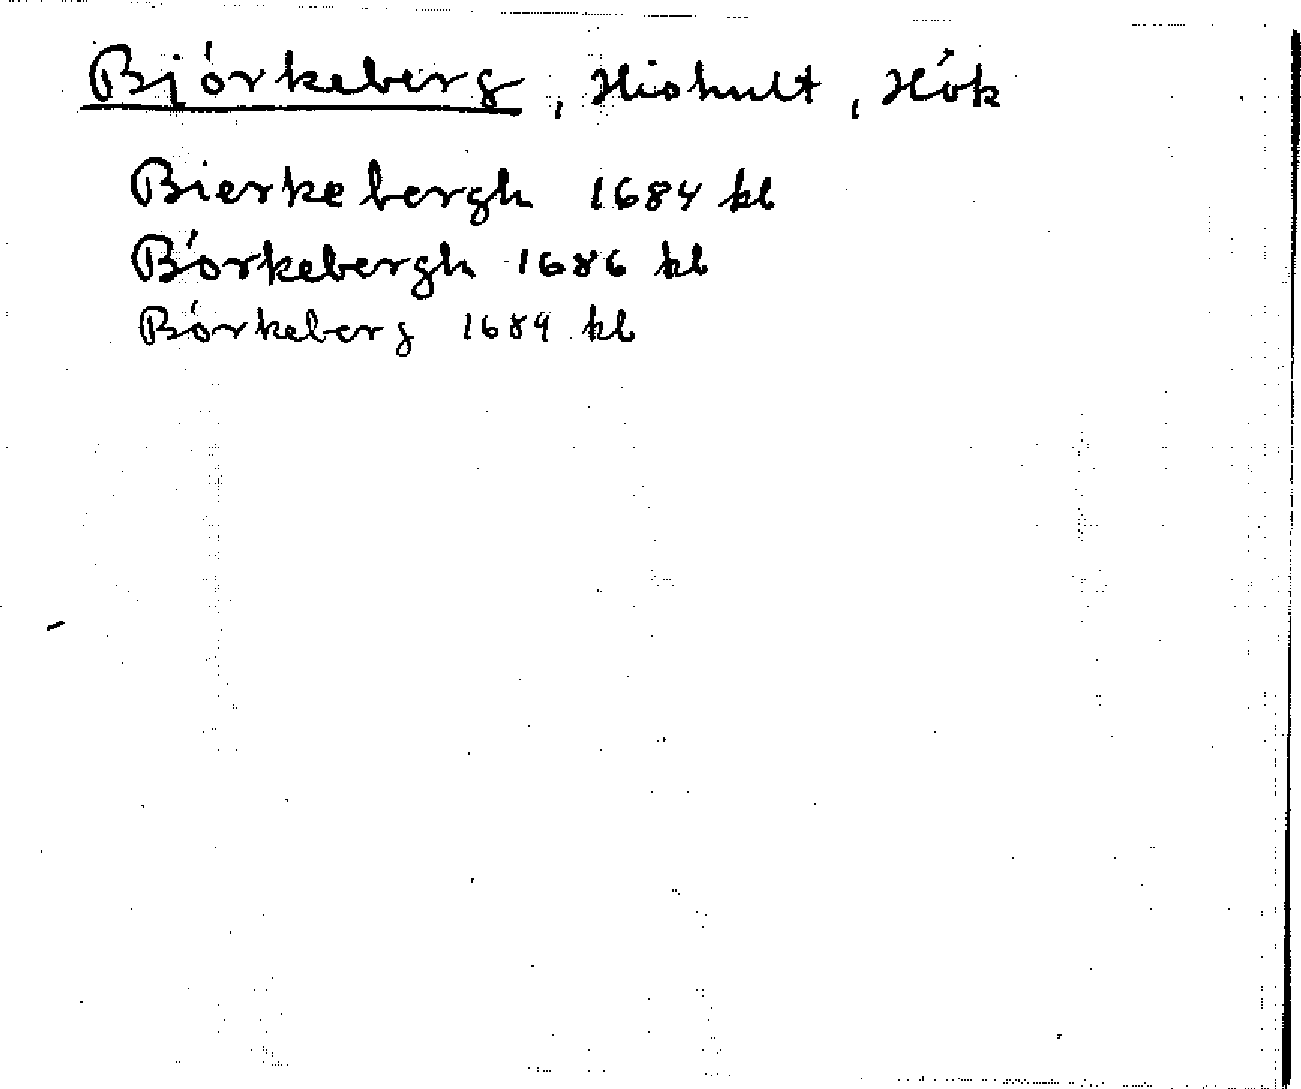 Björkeberg, Hishult, Hök
Bierkebergh 1684 kb
Börkebergh 1686 kb
Börkeberg 1689 kb